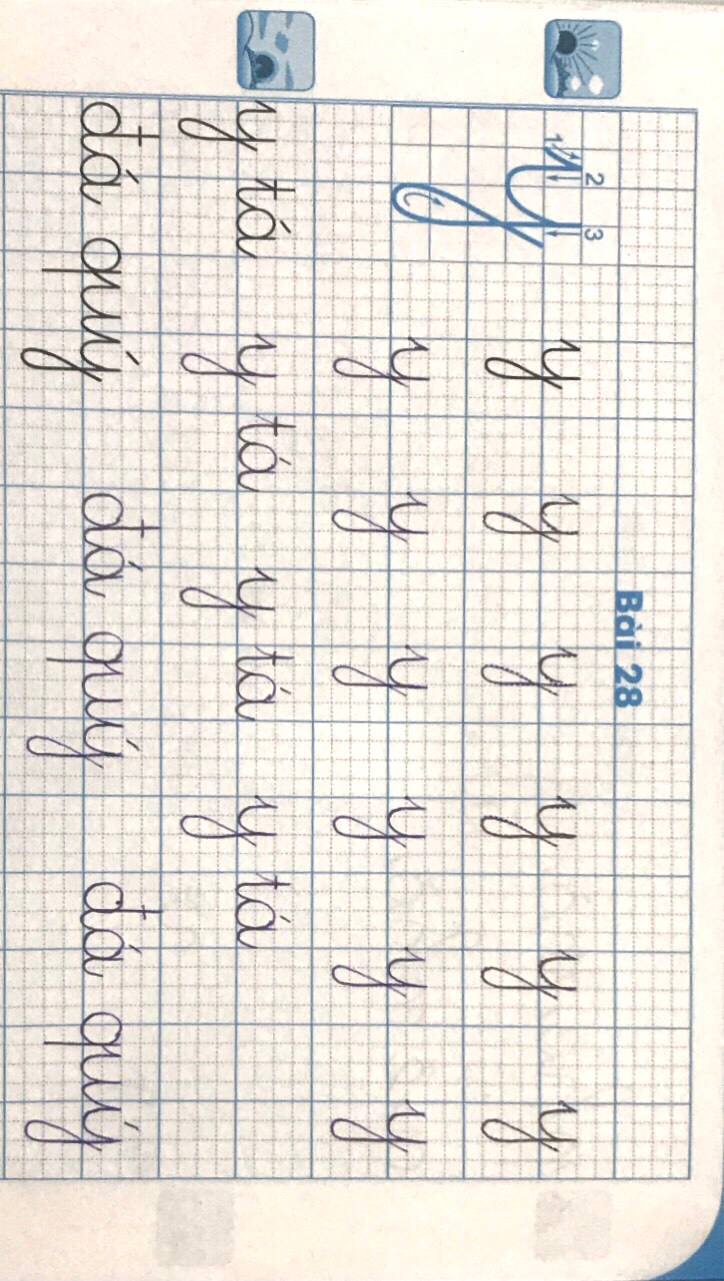 Bài 28
1 2 3
y y y y y y y
y y y y y y
y tá y tá y tá y tá
đá quý đá quý đá quý